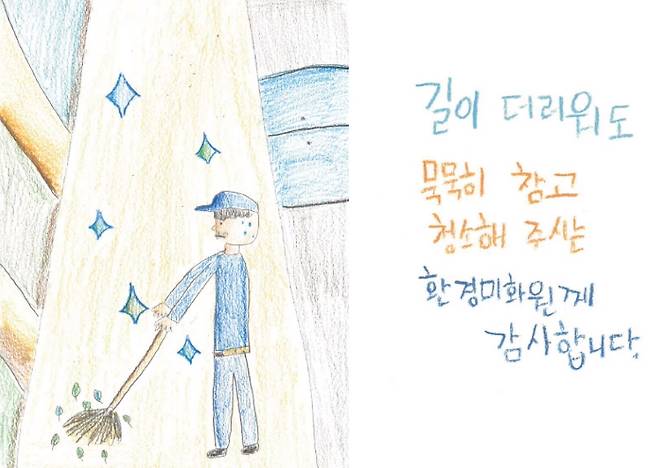 길이 더러워도
묵묵히 참고
청소해 주시는
환경미화원께
감사합니다.